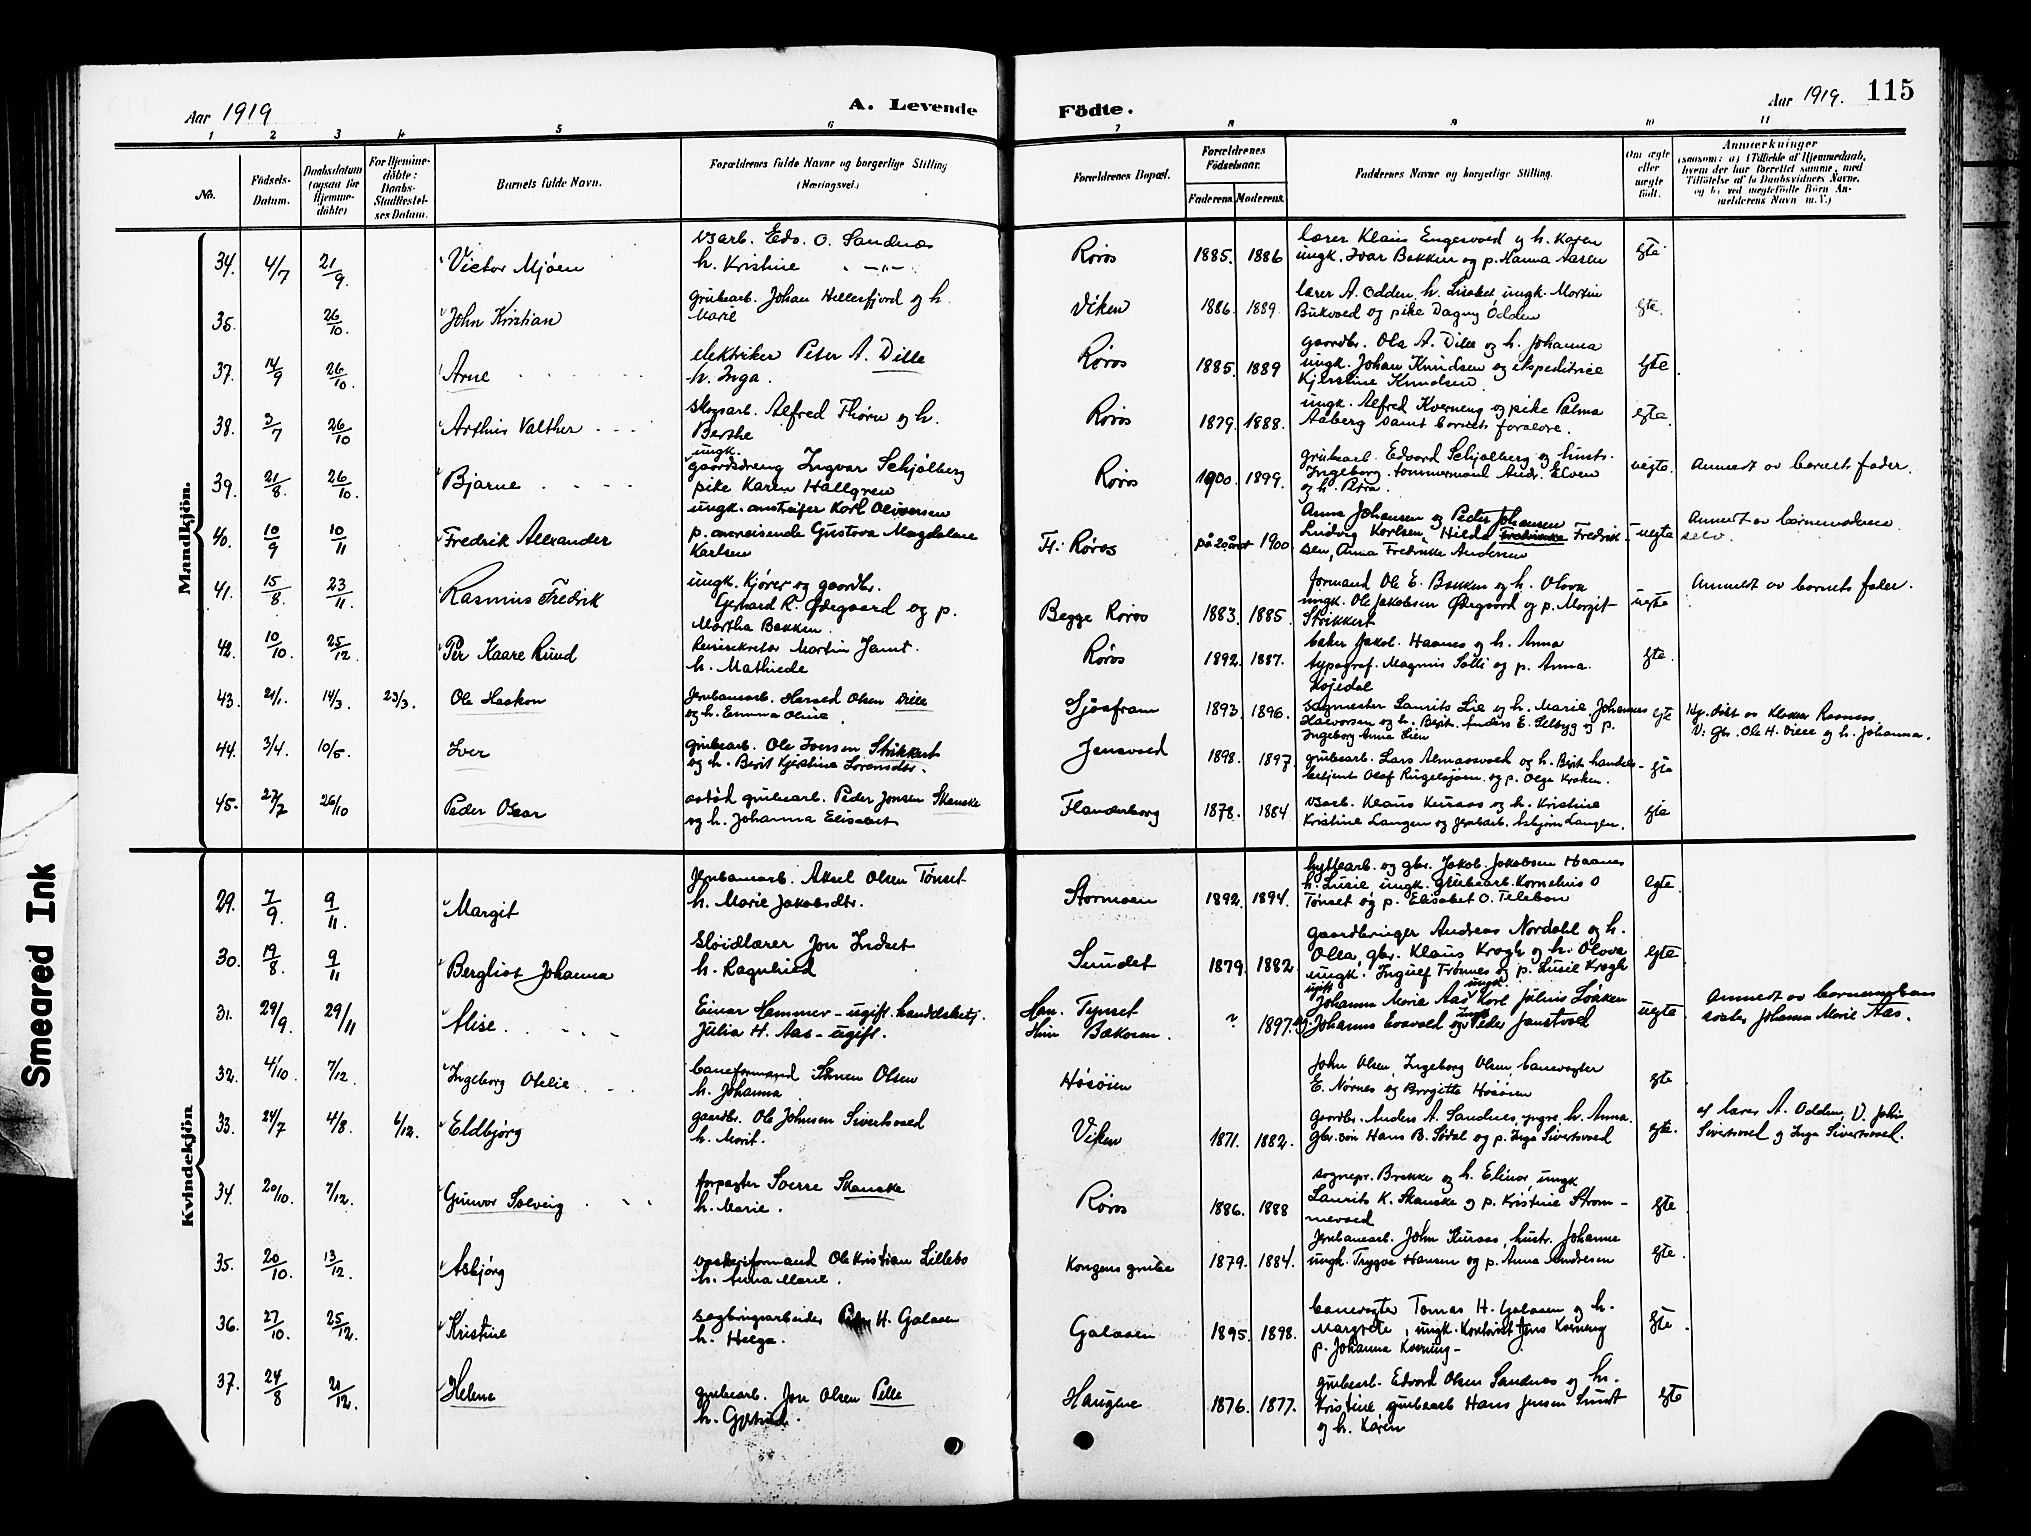 Aar 1919
A. Levende Födte.
Aar 1919. 115
1 2 3 4 5 6 7 8 9 10 11
No.
Födsels-Datum.
Daabsdatum (ogsaa for Hjemmedöbte)
For Hjemmedöbte: Daabs-Stadfæstelses Datum.
Barnets fulde Navn.
Forældrenes fulde Navne og borgerlige Stilling (Næringsvei.)
Forældrenes Bopæl.
Forældrenes Födselsaar.
Faderens. Moderens.
Faddernes Navne og borgerlige Stilling.
Om ægte eller uægte födt.
Anmærkninger
(saasom: a) i Tilfælde af Hjemmedaab, hvem der har forrettet samme, med Tilföielse af to Daabsvidners Navne, og b) ved uægtefödte Börn Anmelderens Navn m. V.)
Mandkjön.
34. 4/7 21/9 Victor Mjøen
h. Kristine
Røros 1885. 1886
lærer Klaus Engesvoed og h. Karen
ungk. Ivar Bakken og p. Hanna Aasen
egte
35. 26/10 John Kristian
grubearb. Johan Hellesfjord og h.
Marie
Viken 1886. 1889.
lærer A. Odden, h. Lisabet, ungk. Martin
Bukvoed og pike Dagny Odden
egte.
37. 14/9 26/10. Arne
elektriker Peter A. Dille
h. Inga.
Røros 1885. 1889
gaardbr. Ola A. Dille og h. Johanna
ungk. Johan Knudsen og ekspeditrice
Kjerstine Knudsen.
egte
38. 3/7 26/10 Arthur Valther
skogsarb. Alfred Thørn og h.
Berthe
Røros 1879. 1888.
ungk. Alfred Kverneng og pike Palma
Aaberg samt barnets forældre.
egte
39. 21/8. 26/10. Bjarne
ungk.
gaardsdreng Ingvar Schjølberg
pike Karen Hallgren
Røros 1900. 1899.
grubearb. Edvard Schjølberg og hustr.
Ingeborg. tømmermand Andr. Elven
og h. Petra.
uegte. Anmeldt av barnets fader.
40. 10/9 10/11 Fredrik Alexander
ungk. anstreifer Karl Oliversen
p. omreisende Gustava Magdalane
Karlsen
Fl: Røros på 20 året 1900
Anna Johansen og Peder Johansen
Ludvig Karlsen, Hilda Fredrikke Fredrik-
sen, Anna Fredrikke Andersen
uegte Anmeldt av barnemoderen
selv.
41. 15/8. 23/11. Rasmus Fredrik
ungk. Kjører og gaardbr.
Gerhard R. Ødegaard og p.
Martha Bakken.
Begge Røros 1883. 1885.
formand Ole E. Bakken og h. Olava
ungk. Ole Jakobsen Ødegaard og p. Margit
Strikkert
uegte Anmeldt av barnets fader.
42. 10/10. 25/12. Per Kaare Rund
Martin Jamt.
h. Mathilde
Røros 1892. 1887.
baker Jakob Haanes og h. Anna
typograf. Magnus Solli og p. Anna
Kojedal
egte.
43. 21/1. 14/3. 23/3. Ole Haakon
Jernbanearb. Harald Olsen Dille
og h. Emma Oline.
Sjøafram 1893. 1896.
sagmester Laurits Lie og h. Marie Johannes
Halvorsen og h. Berit. Anders E. Selbyg og p.
Ingeborg Anna Lien
egte Hj. døbt av Klokker Rasmus.
V: gbr. Ole H. Dille og h. Johanna.
44. 3/4. 10/5. Iver
grubearb. Ole Iversen Strikkert
og h. Berit Kjerstine Lorensdtr.
Jensvoed 1898. 1897.
grubearb. Lars Almaasvoed og h. Berit handels-
betjent Olaf Ringelsjøen og p. Olga Kroken.
egte
45. 27/7 26/10 Peder Oskar
avdød grubearb. Peder Jensen Skanske
og h. Johanna Elisabet
Flanderborg 1878. 1884.
vsarb. Klaus Kuraas og h. Kristine
Kristine Langen og jernbarb. Asbjørn Langen.
egte
Kvindekjön
29. 7/9. 9/11. Margit
Jernbanearb. Aksel Olsen Tønset
h. Marie Jakobsdtr.
Stormoen 1892. 1894.
hyttearb. og gbr. Jakob Jakobsen Haanes
h. Lusie ungk. grubearb. Kornelius O
Tønset og p. Elisabet O. Telebon
egte.
30. 19/8. 9/11 Bergliot Johanna
sløidlærer Jon Indset
h. Ragnhild
Sundet 1879. 1882.
gaardbruger Andreas Nordahl og h.
Olla, gbr. Klaus Krogh og h. Olava
ungk. Ingulf Trønnes og p. Lusie Krogh
egte.
31. 29/9. 29/11 Alise.
Einar Hammer – ugift. handelsbetj.
Julia H. Aas – ugift.
Han. Tynset
Hun Bakosen.
? 1897.
ugift ungk.
Johanna Marie Aas, Karl Julius Loåken
Johannes Evavoed og Peder Jamtvoed
uegte. Anmeldt av barnemoderens
søster Johanna Marie Aas.
32. 4/10. 7/12. Ingeborg Otelie
baneformand Simen Olsen
h. Johanna
Høsøien
John Olsen, Ingeborg Olsen, banevogter
E. Nørnes og Birgitte Høsøien
egte
33. 24/7 4/8. 6/12. Eldbjørg
gaardbr. Ole Johnsen Sivertsvoed
h. Marit.
Viken 1871. 1882.
gaardbr. Anders A. Sandnes, yngre, h. Anna.
gbr.søn Hans B. Sødal og p. Inga Sivertsvoed
egte. af lærer A. Odden, V. John
Sivertsvoed og Inga Sivertsvoed.
34. 20/10. 7/12. Gunvor Solveig
forpagter Sverre Skanske
h. Marie.
Røros 1886. 1888
sognepr. Brække og h. Elinor, ungk
Laurits K. Skanske og p. Kristine Strøm-
mevoed
egte
35. 20/10. 13/12. Asbjørg
vaskeriformand Ole Kristian Lillebo
h. Anna Marie.
Kongens grube 1879. 1884.
Jernbanearb. John Kuraas, hustr. Johanne
ungk. Trygve Hansen og p. Anna Andresen
egte.
36. 27/10. 25/12. Kristine
sagbrugsarbeider Peder H. Galaaen
h. Helga.
Galaaen 1895. 1898.
banevogter Tomas H. Galaaen og h.
Margrete, ungk. Kontorist Jens Kverneng
p. Johanna Kverneng –
egte
37. 24/8 21/12. Helene
grubearb. Jon Olsen Pelle
h. Gjertrud.
Haugene 1876. 1877.
grubearb. Edvard Olsen Sandnes og h.
Kristine grubearb Hans Jensen Sundt
og h. Karen
egte
Smeared Ink